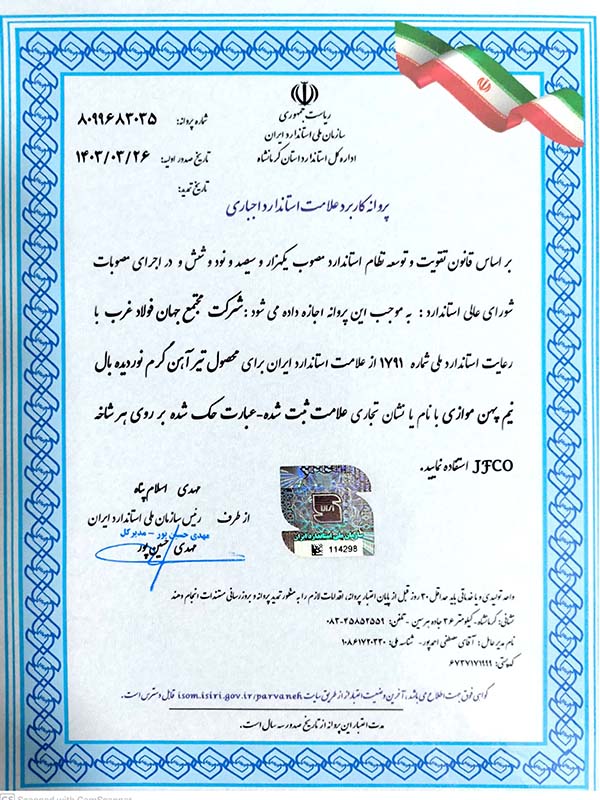 ریاست جمهوری
سازمان ملی استاندارد ایران
اداره کل استاندارد استان کرمانشاه
شماره پروانه: ۸۰۹۹۶۸۳۰۳۵
تاریخ صدور اولیه: ۱۴۰۳/۰۳/۲۶
تاریخ تمدید:
پروانه کاربرد علامت استاندارد اجباری
بر اساس قانون تقویت و توسعه نظام استاندارد مصوب یکهزار و سیصد و نود و شش و در اجرای مصوبات
شورای عالی استاندارد : به موجب این پروانه اجازه داده می شود : شرکت مجتمع جهان فولاد غرب با
رعایت استاندارد ملی شماره ۱۷۹۱ از علامت استاندارد ایران برای محصول تیرآهن گرم نوردیده بال
نیم پهن موازی با نام یا نشان تجاری علامت ثبت شده-عبارت حک شده بر روی هر شاخه
JFCO استفاده نمایید.
مهدی اسلام پناه
از طرف رئیس سازمان ملی استاندارد ایران
مهدی حسین پور - مدیرکل
مهدی حسین پور
سازمان ملی استاندارد ایران
114298
واحد تولیدی و یا خدماتی باید حداقل ۳۰ روز قبل از پایان اعتبار پروانه، اقدامات لازم را به منظور تمدید پروانه و بروزرسانی مستندات انجام دهند
نشانی: کرمانشاه- کیلومتر ۳۶ جاده هرسین - تلفن: ۴۵۸۵۲۵۵۱-۰۸۳
نام مدیرعامل: آقای مصطفی احمدپور- شناسه ملی: ۱۰۸۶۱۷۲۰۳۳۰
کدپستی: ۶۷۳۷۱۷۱۹۹۹
گواهی فوق جهت اطلاع می باشد، آخرین وضعیت اعتبار از طریق سایت isom.isiri.gov.ir/parvaneh قابل دسترس است.
مدت اعتبار این پروانه از تاریخ صدور سه سال است.
CS Scanned with CamScanner